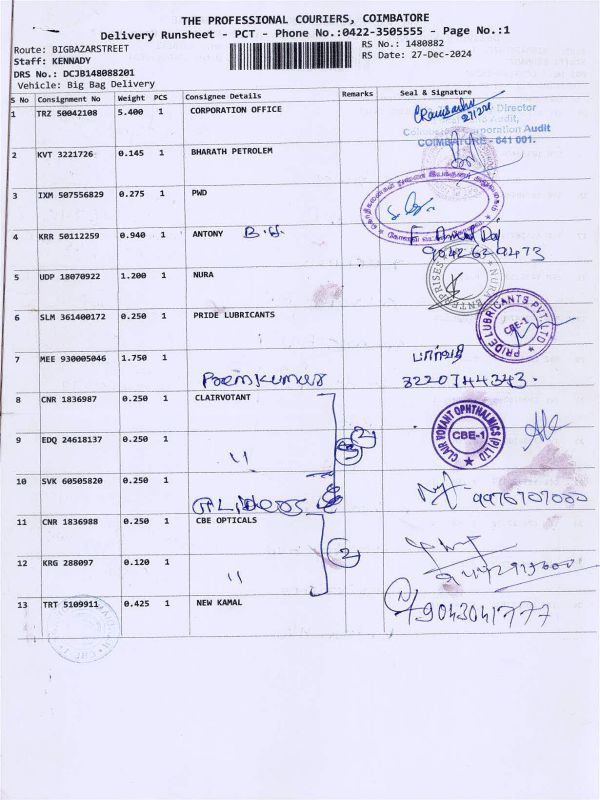 THE PROFESSIONAL COURIERS, COIMBATORE
Delivery Runsheet - PCT - Phone No.:0422-3505555 - Page No.:1
Route: BIGBAZARSTREET
RS No.: 1480882
Staff: KENNADY
RS Date: 27-Dec-2024
DRS No.: DCJB148088201
Vehicle: Big Bag Delivery
S No Consignment No Weight PCS Consignee Details Remarks Seal & Signature
1 TRZ 50042108 5.400 1 CORPORATION OFFICE
Director
Audit,
Corporation Audit
COIMBATORE - 641 001.
2 KVT 3221726 0.145 1 BHARATH PETROLEM
3 IXM 507556829 0.275 1 PWD
4 KRR 50112259 0.940 1 ANTONY
9042629473
5 UDP 18070922 1.200 1 NURA
NURA ENTERPRISES
6 SLM 361400172 0.250 1 PRIDE LUBRICANTS
PRIDE LUBRICANTS PVT. LTD
CBE-1
7 MEE 930005046 1.750 1
Premkumar
3220744343.
8 CNR 1836987 0.250 1 CLAIRVOTANT
CLAIR VOYANT OPHTHALMICS (P) LTD
CBE-1
9 EDQ 24618137 0.250 1 "
2
10 SVK 60505820 0.250 1
9976707000
11 CNR 1836988 0.250 1 CBE OPTICALS
2
12 KRG 288097 0.120 1 "
13 TRT 5109911 0.425 1 NEW KAMAL
9043041777